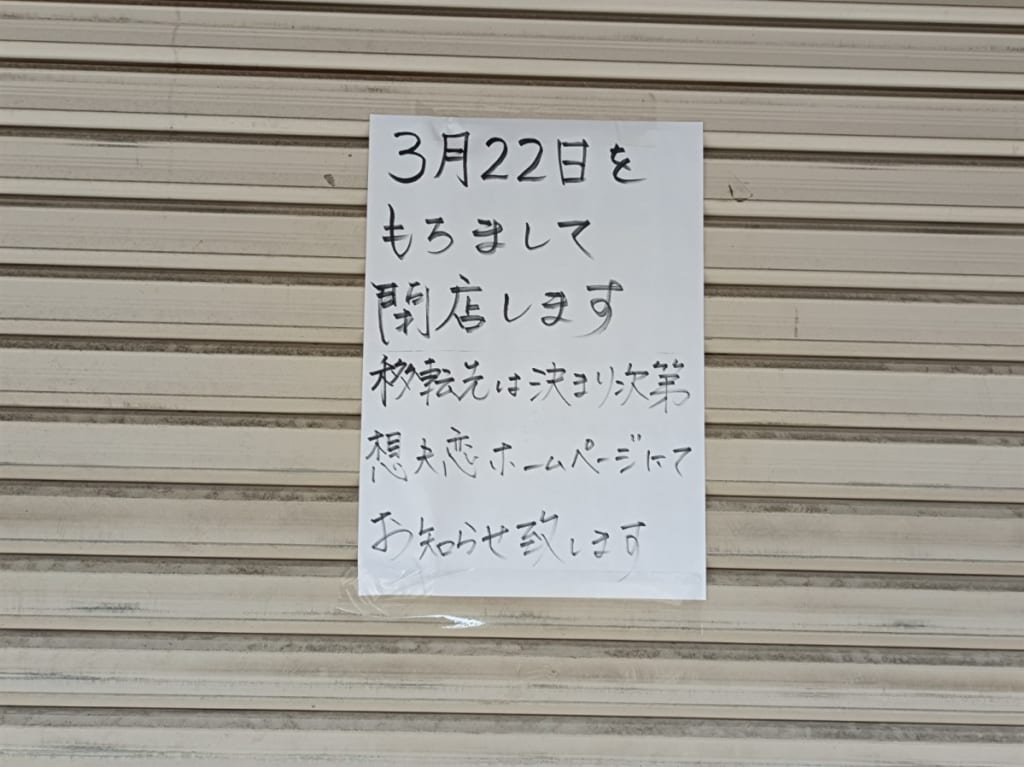 3月22日を
もちまして
閉店します
移転先は決まり次第
想夫恋ホームページにて
お知らせ致します